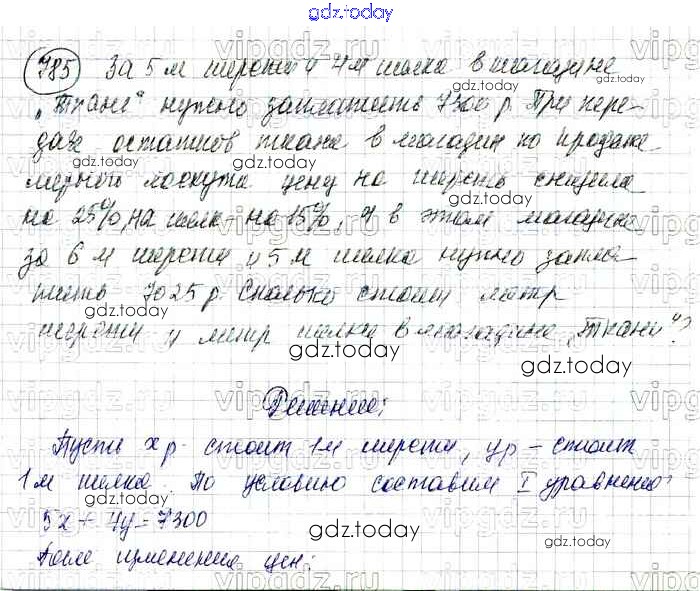 gdz.today
785 За 5 м шерсти и 4 м шелка в магазине
„Ткани“ нужно заплатить 7300 р. При пере-
даче остатков ткани в магазин по продаже
мерного лоскута цену на шерсть снизили
на 25%, на шелк - на 15%, и в этом магазине
за 6 м шерсти и 5 м шелка нужно запла-
тить 7025 р. Сколько стоит метр
шерсти и метр шелка в магазине „Ткани“?
Решение:
Пусть x р. стоит 1 м шерсти, y р - стоит
1 м шелка. По условию составим I уравнение:
5x + 4y = 7300
После изменения цен: